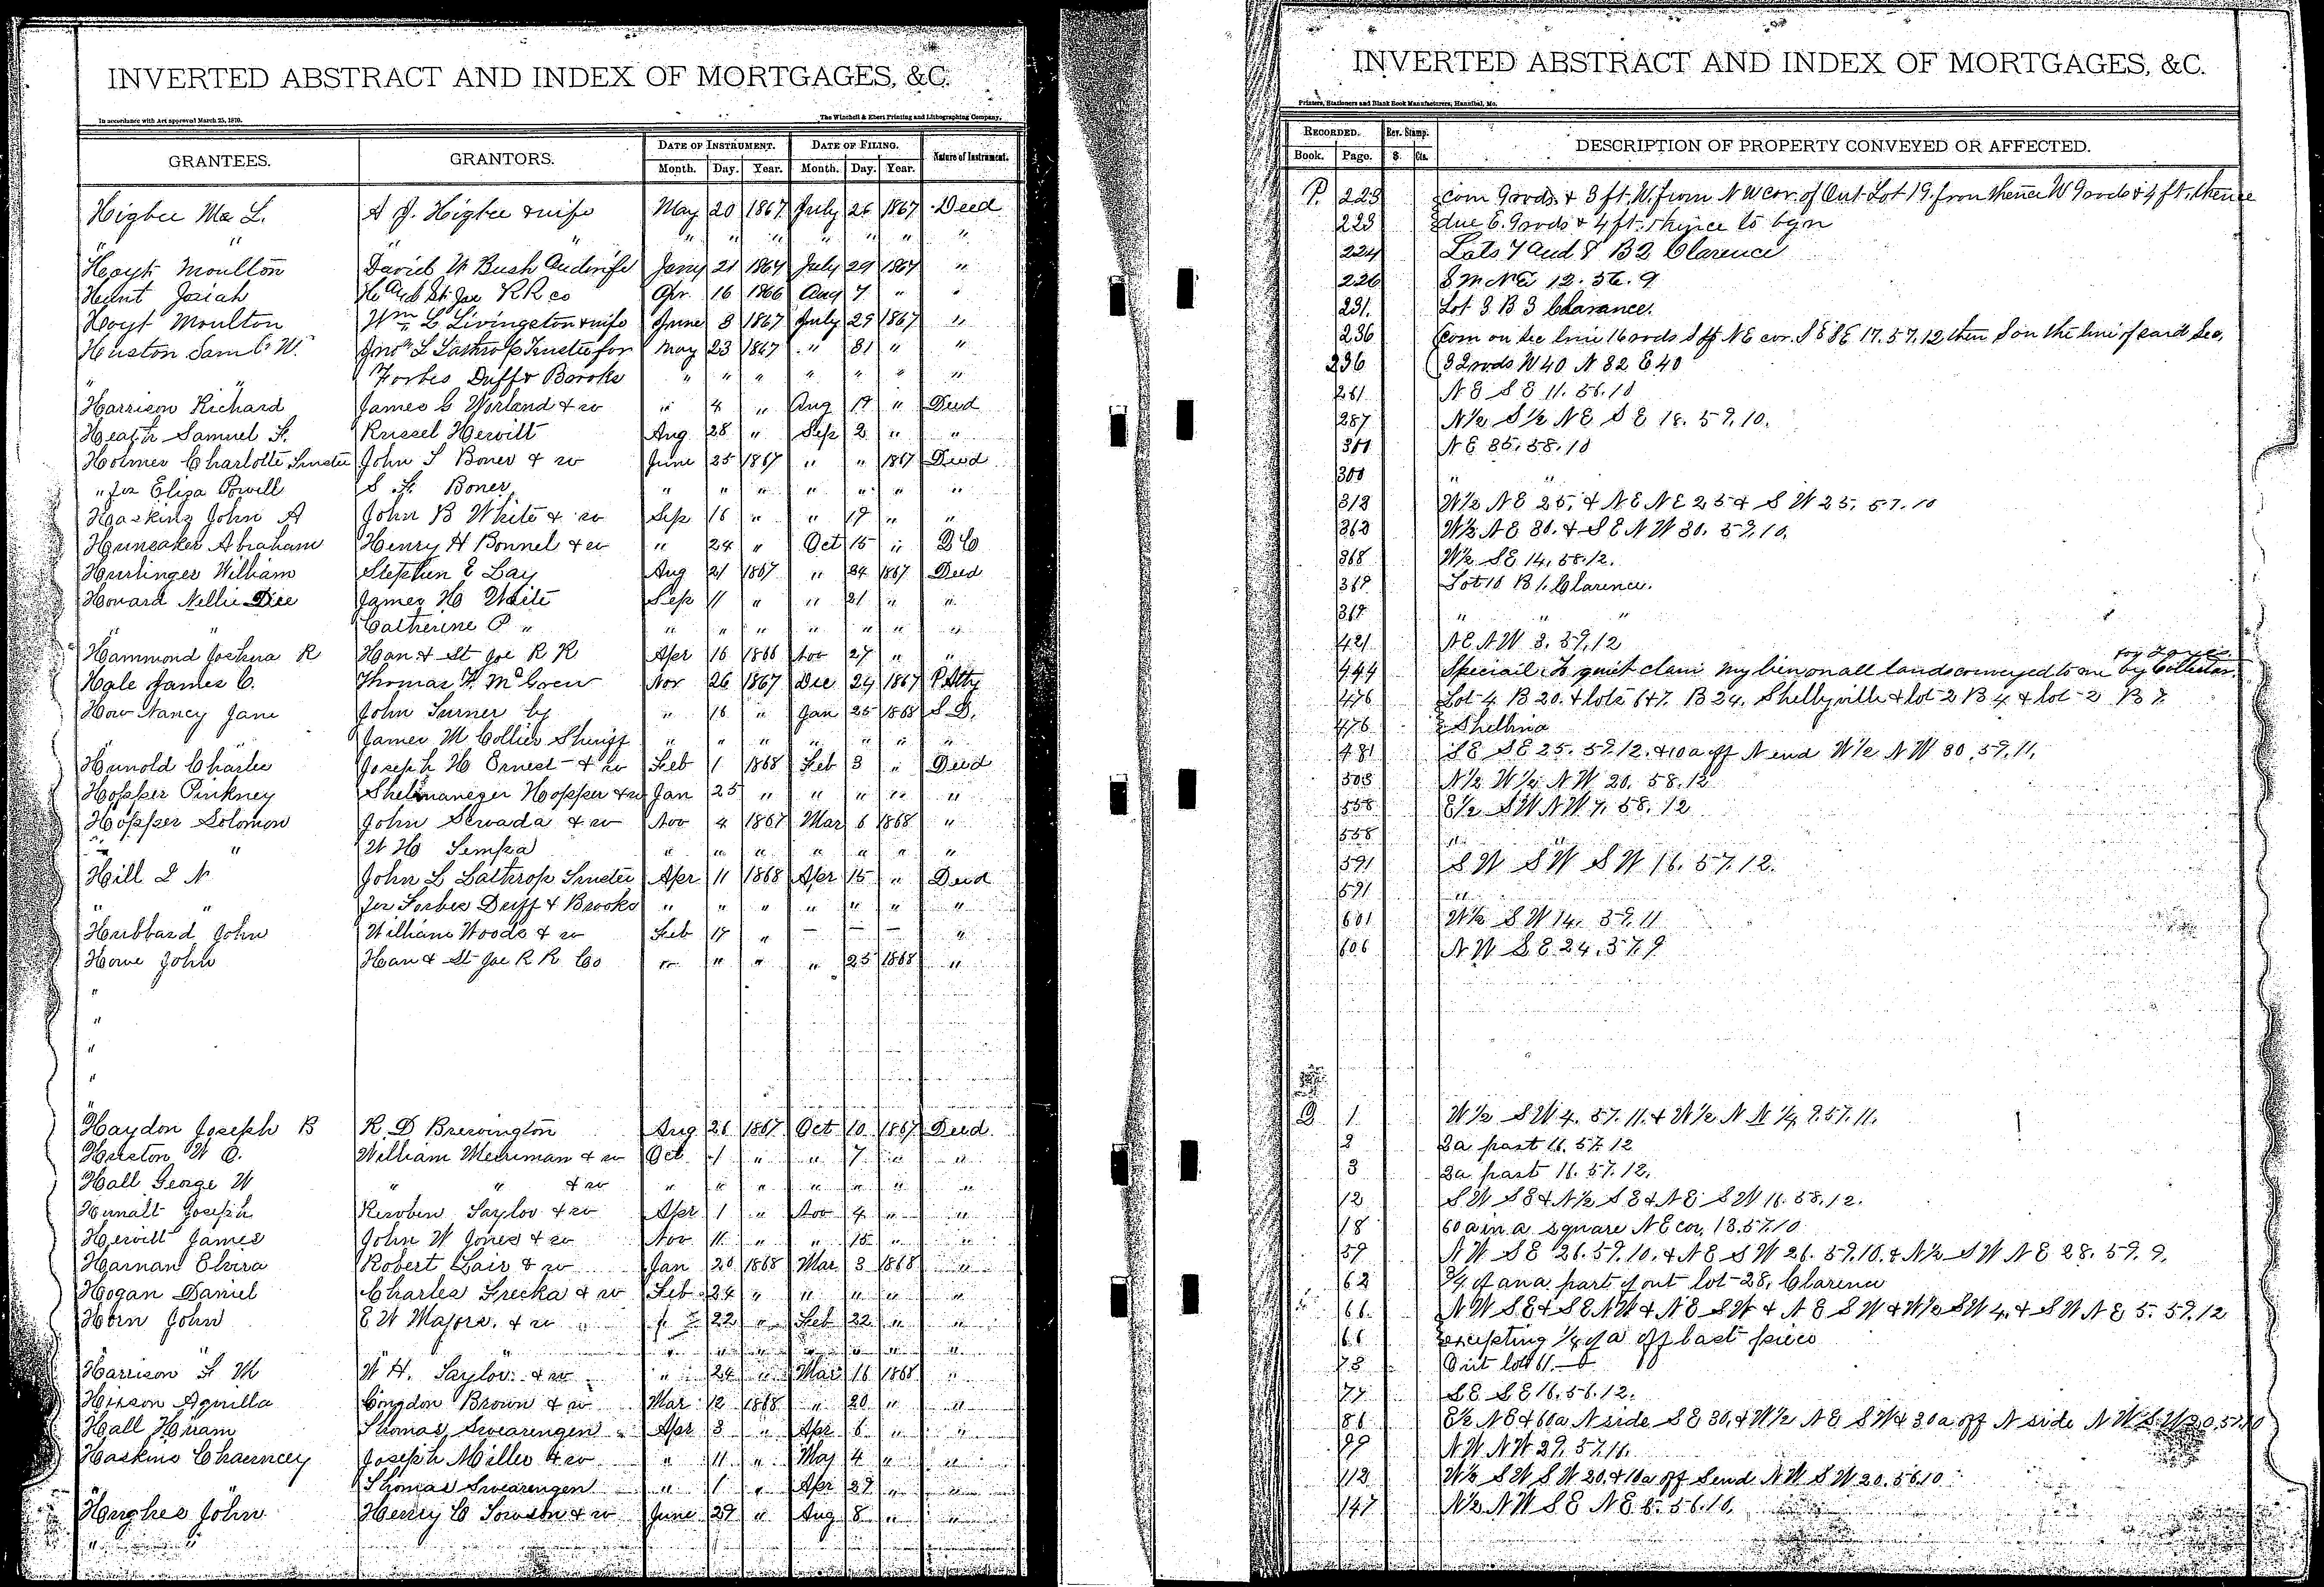 INVERTED ABSTRACT AND INDEX OF MORTGAGES, &C.
In accordance with Act approved March 25, 1870.
The Winchell & Ebert Printing and Lithographing Company,
GRANTEES. GRANTORS. DATE OF INSTRUMENT. DATE OF FILING. Nature of Instrument.
Month. Day. Year. Month. Day. Year.
Higbee Ma L. A J. Higbee & wife May 20 1867 July 26 1867 Deed
" " " " " " " " "
Hoyt Moulton David W Bush and wife Jany 21 1867 July 29 1867 "
Hunt Josiah H and St. Joe RR co Apr 16 1866 Aug 7 " "
Hoyt Moulton Wm L Livingston & wife June 3 1867 July 29 1867 "
Huston Saml W. Jno L Lathrop Trustee for May 23 1867 " 31 " "
" " Forbes Duff & Brooks " " " " " " "
Harrison Richard James G Worland & w " 4 " Aug 19 " Deed
Heath Samuel F. Russel Hewitt Aug 28 " Sep 2 " "
Holmes Charlotte Trustee John S Boner & w June 25 1867 " " 1867 Deed
" for Eliza Powell S F. Boner " " " " " " "
Hoskins John A John B White & w Sep 16 " " 17 " "
Hunsaker Abraham Henry H Bonnel & w " 24 " Oct 15 "
Hurlinger William Stephen E Lay Aug 21 1867 " 24 1867 Deed
Howard Nellie Dice James H Waite Sep 11 " " 21 " "
" " Catherine P " " " " " " " "
Hammond Joshua R Han & St Joe R R Apr 16 1866 Nov 27 " "
Hale James C. Thomas F. McGrew Nov 26 1867 Dec 24 1867 P Atty
How Nancy Jane John Turner by " 16 " Jan 25 1868 S D.
" James M Collier Sheriff " " " " " " "
Hunold Charles Joseph H Ernest & w Feb 1 1868 Feb 3 " Deed
Hopper Pinkney Hopper & w Jan 25 " " " " "
Hopper Solomon John Servada & w Nov 4 1867 Mar 6 1868 "
" " W H Sempa " " " " " " "
Hill L N John L Lathrop Trustee Apr 11 1868 Apr 15 " Deed
" " for Forbes Duff & Brooks " " " " " " "
Hubbard John William Woods & w Feb 17 " — — — "
Howe John Han & St Joe R R Co " " " " 25 1868 "
"
"
"
"
"
Haydon Joseph B R. D Brewington Aug 26 1867 Oct 10 1867 Deed
Huston W O. William Merriman & w Oct 1 " " 7 " "
Hall George W " " & w " " " " " " "
Hurnalt Joseph Reuben Taylor & w Apr 1 " Nov 4 " "
Hewitt James John W Jones & w Nov 11 " " 15 " "
Harnan Elvira Robert Lair & w Jan 20 1868 Mar 3 1868 "
Hogan Daniel Charles Frecka & w Feb 24 " " " " "
Horn John E W Majors. & w " 22 " Feb 22 " "
" " " " " " " " "
Harrison F M W H. Taylor & w " 24 " Mar 16 1868 "
Hixson Aquilla Congdon Brown & w Mar 12 1868 " 20 " "
Hall Hiram Thomas Swearengen " Apr 3 " Apr 6 " "
Haskins Chauncey Joseph Miller & w " 11 " May 4 " "
Thomas Swearengen " 1 " Apr 29 " "
Hughes John Henry C Towson & w June 29 " Aug 8 " "
" "
INVERTED ABSTRACT AND INDEX OF MORTGAGES, &C.
Printers, Stationers and Blank Book Manufacturers, Hannibal, Mo.
RECORDED. Rev. Stamp. DESCRIPTION OF PROPERTY CONVEYED OR AFFECTED.
Book. Page. $. Cts.
P. 223 com 9 rods & 3 ft. W. from N W cor. of Out Lot 19. from thence W 9 rods & 4 ft. thence
223 due E. 9 rods & 4 ft. thence to bgn
224 Lots 7 and 8 B 2 Clarence
226 12. 56. 9
231. Lot 3 B 3 Clarance.
236 Com on Sec line 16 rods S of N E cor. S E S E 17. 57. 12 then S on the line of said Sec.
236 32 rods W 40 N 32 E 40
261 N E S E 11. 56. 10
287 N½ S½ N E S E 18. 57. 10.
300 N E 35. 58. 10
300 " "
312 W½ N E 25. & N E N E 25 & S W 25. 57. 10
362 W½ N E 30. & S E N W 30. 57. 10.
368 W½ S E 14. 58. 12.
369 Lot 10 B 1. Clarence.
369 " " "
421 N E N W 3. 59. 12
for Taxes
444 Special. To quit claim my lien on all lands conveyed to me by Collector.
476 Lot 4. B 20. & lots 6 & 7. B 24. Shelbyville & lot 2 B 4 & lot 2 B 7.
476 Shelbina
481 S E S E 25. 59. 12. & 10 a off N end W½ N W 30. 59. 11.
503 N½ W½ N W 20. 58. 12
558 E½ S W N W 7. 58. 12
558 "
591 S W S W S W 16. 57. 12.
591 "
601 W½ S W 14. 59. 11
606 N W S E 24. 57. 9
Q 1 W½ S W 4. 57. 11. & W½ N W ¼ 9. 57. 11.
2 2a part 16. 57. 12
3 2a part 16. 57. 12.
12 S W S E & N½ S E & N E S W 16. 58. 12.
18 60 a in a square N E cor. 13. 57. 10
59 N W S E 26. 59. 10. & N E S W 26. 59. 10. & N½ S W N E 28. 59. 9.
62 ¾ of an a part of out lot 28. Clarence
66 N W S E & S E N W & N E S W & N E S W & W½ S W 4. & S W N E 5. 59. 12
66 excepting ¼ of a off last piece
73 Out lot 61.
77 S E S E 16. 56. 12.
86 E½ N E & 60 a N side S E 30. & W½ N E S W & 30 a off N side N W S W 30. 57. 10
99 N W N W 29. 57. 11.
112 W½ S W S W 20. & 10 a off S end N W S W 20. 56. 10
147 N½ N W S E N E 5. 56. 10.